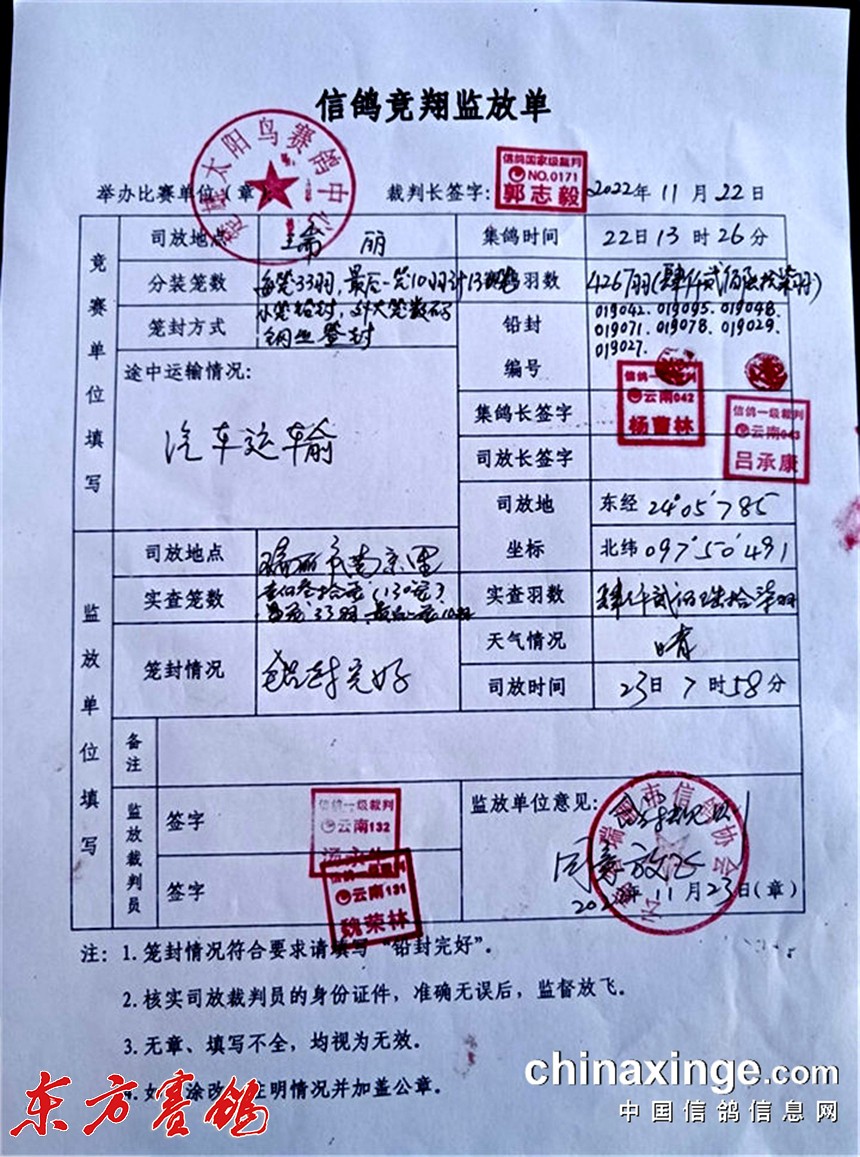 信鸽竞翔监放单
太阳鸟赛鸽中心
举办比赛单位(章)
裁判长签字:
信鸽国家级裁判
NO.0171
郭志毅
2022年 11月 22日
竞赛单位填写
司放地点 瑞丽
集鸽时间 22日13时26分
分装笼数 每笼33羽,最后一笼10羽计13
羽数 4267羽
笼封方式
铅封编号 019042. 019095. 019048.
019071. 019078. 019029.
019027.
途中运输情况:
汽车运输
集鸽长签字
信鸽一级裁判
云南042
杨曹林
司放长签字
信鸽一级裁判
云南043
吕承康
司放地坐标
东经 24°05′785
北纬 097°50′491
监放单位填写
司放地点
实查笼数 (130笼)
实查羽数
天气情况 晴
笼封情况 铅封完好
司放时间 23日7时58分
备注
监放裁判员
签字
信鸽一级裁判
云南132
签字
信鸽一级裁判
云南131
魏荣林
监放单位意见:
瑞丽市信鸽协会
同意放飞
2022年11月23日(章)
注: 1. 笼封情况符合要求请填写“铅封完好”。
2. 核实司放裁判员的身份证件,准确无误后,监督放飞。
3. 无章、填写不全,均视为无效。
4. 如 涂改 证明情况并加盖公章。
东方赛鸽
chinaxinge.com
中国信鸽信息网